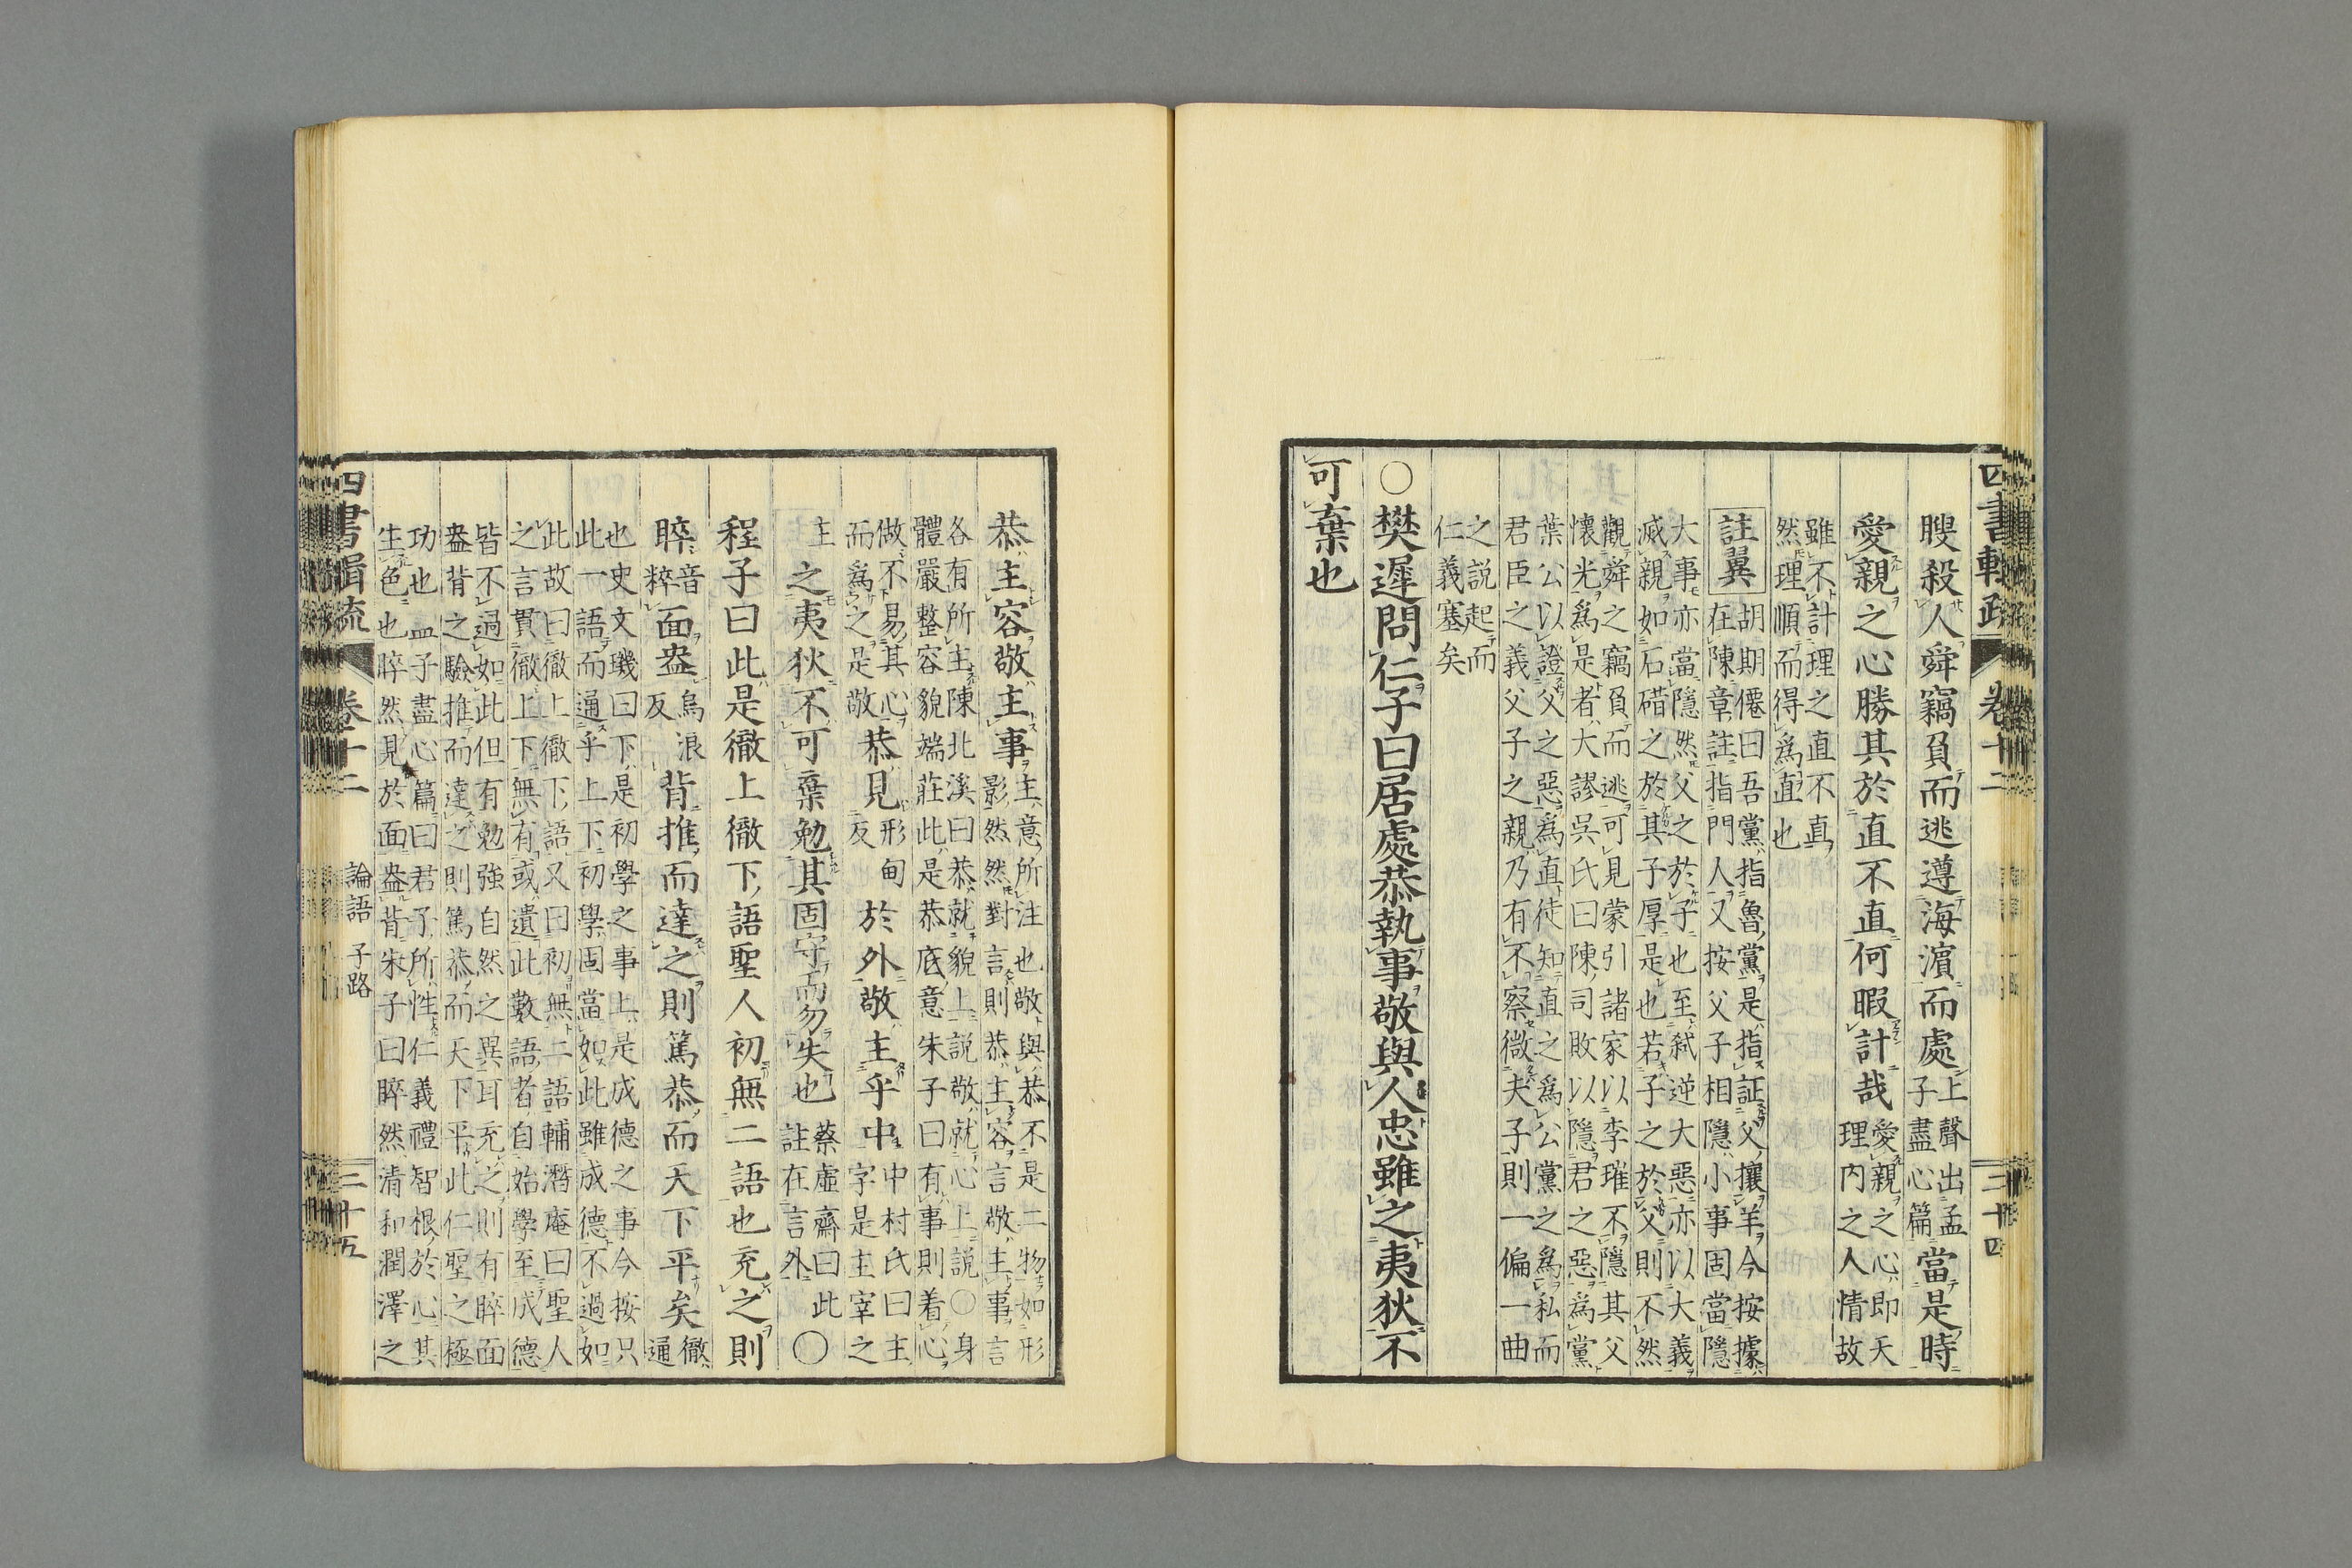 四書輯疏 卷十二 三十四
瞍殺人舜竊負而逃遵海濱而處上聲出孟
子盡心篇當是時
愛親之心勝其於直不直何暇計哉愛親之心即天
理内之人情故
雖不計理之直不直
然理順而得為直也
註翼胡期僊曰吾黨指魯黨是指証父攘羊今按據
在陳章註指門人又按父子相隱小事固當隱
大事亦當隱然父之於子也至弑逆大惡亦以大義
滅親如石碏之於其子厚是也若子之於父則不然
觀舜之竊負而逃可見蒙引諸家以李璀不隱其父
懷光為是者大謬吳氏曰陳司敗以隱君之惡為黨
葉公以證父之惡為直徒知直之為公黨之為私而
君臣之義父子之親乃有不察微夫子則一偏一曲
之説起而
仁義塞矣
○樊遲問仁子曰居處恭執事敬與人忠雖之夷狄不
可棄也
恭主容敬主事主意所注也敬與恭不是二物如形
影然然對言則恭主容言敬主事言
各有所主陳北溪曰恭就貌上説敬就心上説○身
體嚴整容貌端莊此是恭底意朱子曰有事則着心
做不易其心
而為之是敬恭見形甸
反於外敬主乎中中村氏曰主
字是主宰之
主之夷狄不可棄勉其固守而勿失也蔡虛齋曰此
註在言外○
程子曰此是徹上徹下語聖人初無二語也充之則
睟音
粹面盎烏浪
反背推而達之則篤恭而天下平矣徹
通
也史文璣曰下是初學之事上是成德之事今按只
此一語而通乎上下初學固當如此雖成德不過如
此故曰徹上徹下語又曰初無二語輔潛庵曰聖人
之言貫徹上下無有或遺此數語者自始學至成德
皆不過如此但有勉強自然之異耳充之則有睟面
盎背之驗推而達之則篤恭而天下平此仁聖之極
功也孟子盡心篇曰君子所性仁義禮智根於心其
生色也睟然見於面盎背朱子曰睟然清和潤澤之
四書輯疏 卷十二 論語 子路 三十五